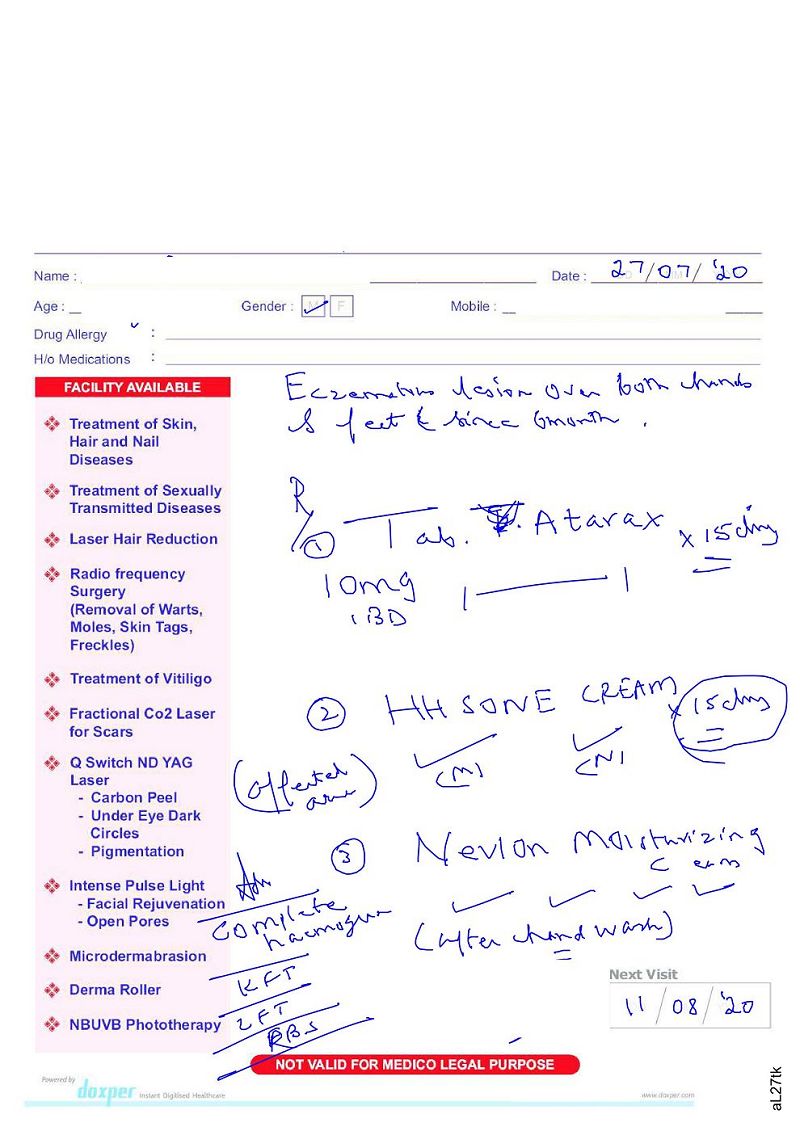 Name :
Date : 27/07/'20
Age :
Gender : M F
Mobile :
Drug Allergy :
H/o Medications :
FACILITY AVAILABLE
Treatment of Skin,
Hair and Nail
Diseases
Treatment of Sexually
Transmitted Diseases
Laser Hair Reduction
Radio frequency
Surgery
(Removal of Warts,
Moles, Skin Tags,
Freckles)
Treatment of Vitiligo
Fractional Co2 Laser
for Scars
Q Switch ND YAG
Laser
- Carbon Peel
- Under Eye Dark
Circles
- Pigmentation
Intense Pulse Light
- Facial Rejuvenation
- Open Pores
Microdermabrasion
Derma Roller
NBUVB Phototherapy
lesion over both hands
& feet since 6month .
R/
① Tab. Atarax x 15 days
10mg 1 — 1
BD
② HH SONE CREAM x 15 days
(affected area) (M) (N)
③ Nevlon Moisturizing
(after hand wash)
Adv
Complete
KFT
LFT
RBS
Next Visit
11/08/'20
NOT VALID FOR MEDICO LEGAL PURPOSE
Powered by doxper Instant Digitised Healthcare
www.doxper.com
aL27tk